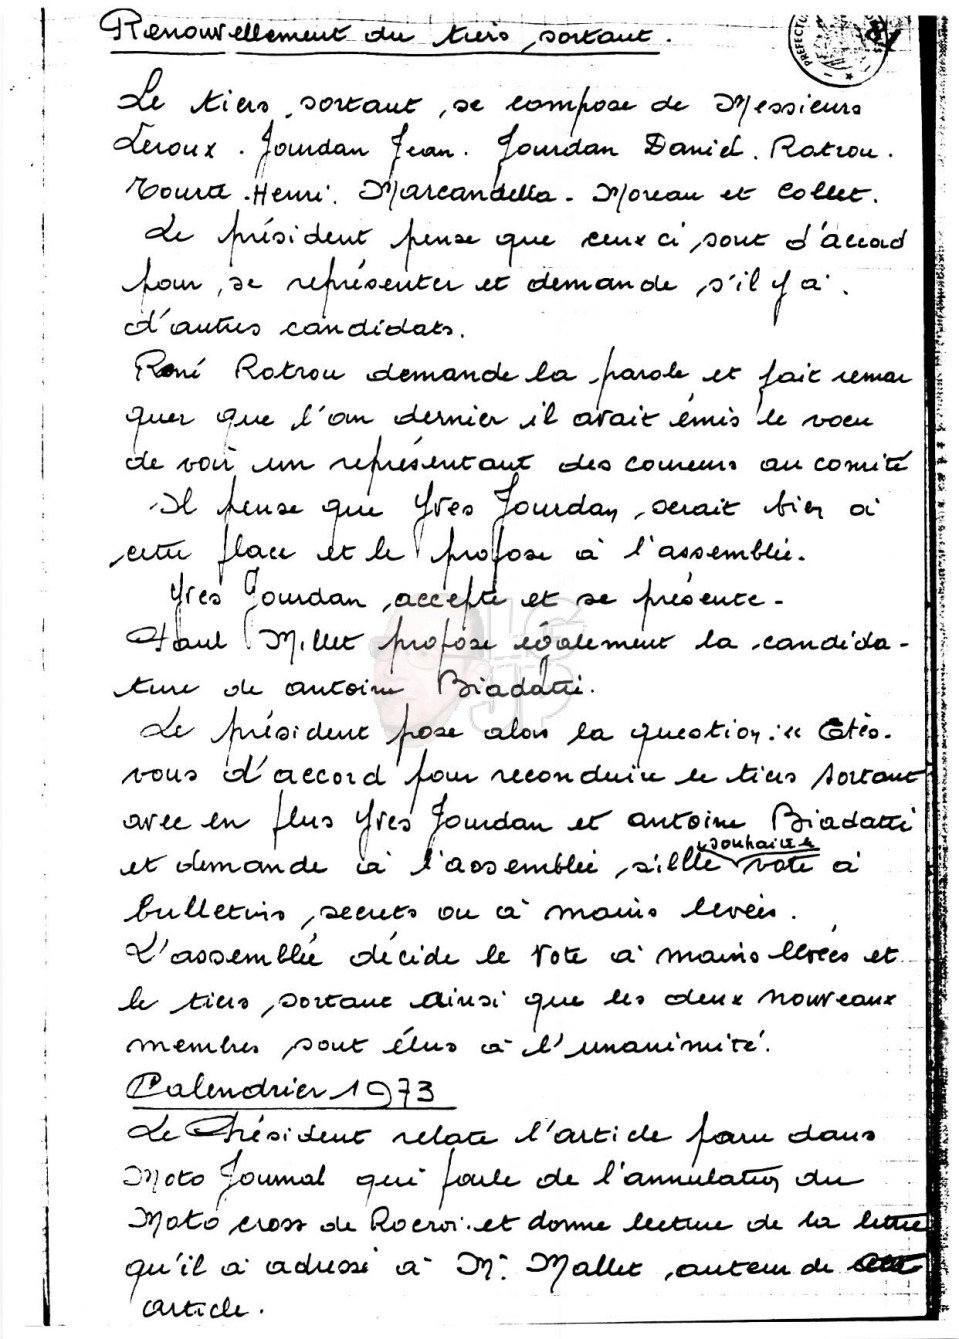 Renouvellement du tiers sortant.
PREFECTU
81
Le tiers sortant se compose de Messieurs
Leroux. Jourdan Jean. Jourdan Daniel. Rotrou.
Henri. Marcandella. Moreau et Collet.
Le président pense que ceux ci sont d'accord
pour se représenter et demande s'il y a
d'autres candidats.
René Rotrou demande la parole et fait remar
quer que l'an dernier il avait émis le voeu
de voir un représentant des coureurs au comité
Il pense que Yves Jourdan serait bien à
cette place et le propose à l'assemblée.
Yves Jourdan accepte et se présente.
Paul Millet propose également la candida-
ture de antoine Biadatti.
LC
JP
Le président pose alors la question: " Etes.
vous d'accord pour reconduire le tiers sortant
avec en plus Yves Jourdan et antoine Biadatti
souhaite le
et demande à l'assemblée si elle vote à
bulletins secrets ou à mains levées.
L'assemblée décide le vote à mains levées et
le tiers sortant ainsi que les deux nouveaux
membres sont élus à l'unanimité.
Calendrier 1973
Le Président relate l'article paru dans
Moto Journal qui parle de l'annulation du
Moto cross de Rocroi et donne lecture de la lettre
qu'il a adressé à Mr Mallet, auteur de cet
article.